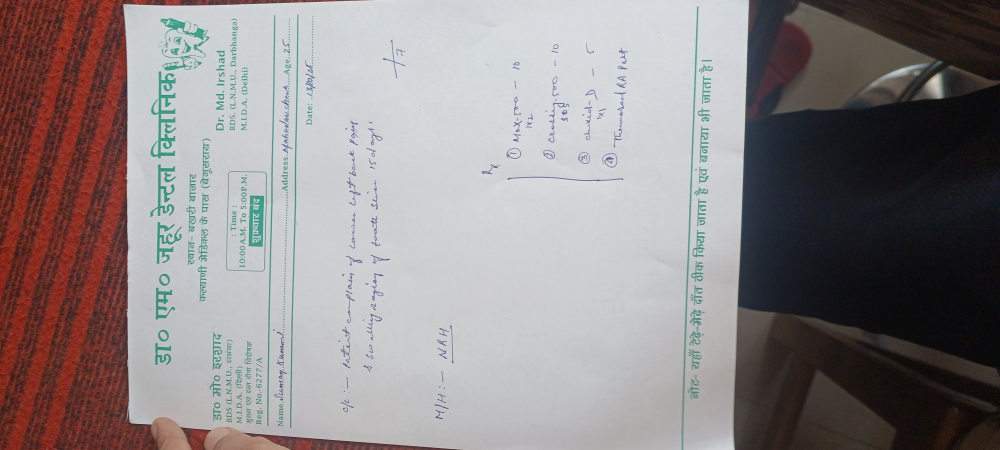 डा० एम० जहूर डेन्टल क्लिनिक
स्थान- बखरी बाजार
कल्याणी मेडिकल के पास (बेगूसराय)
डा० मो० इरशाद
BDS (L.N.M.U., दरभंगा)
M.I.D.A. (दिल्ली)
मुख एवं दन्त रोग विशेषज्ञ
Reg. No.-6277/A
: Time :
10:00A.M. To 5:00P.M.
शुक्रवार बंद
Dr. Md. Irshad
BDS. (L.N.M.U., Darbhanga)
M.I.D.A. (Delhi)
Name Kumari Address Age 25
Date:
c/c :- Patient complain of lower left back pain
& swelling region of since 15 days'
7
M/H :- NRH
Rx
① Mox-500 - 10
1x2
② 500 - 10
③ D - 5
④ RA
नोट- यहाँ टेढ़े-मेढ़े दाँत ठीक किया जाता है एवं बनाया भी जाता है।